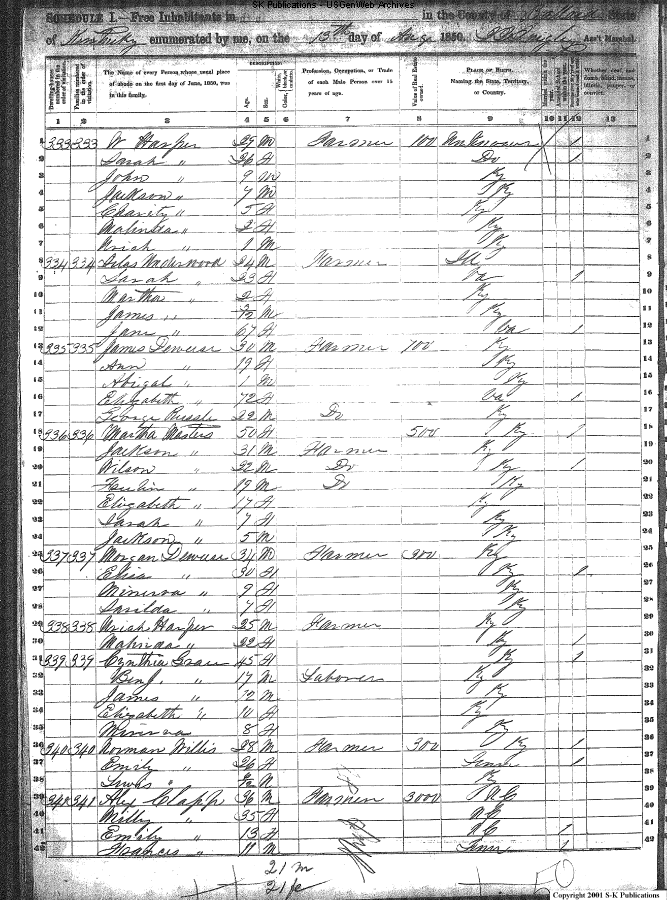 SK Publications - USGenWeb Archives
SCHEDULE I.—Free Inhabitants in in the County of State
of Kentucky enumerated by me, on the 13th day of Aug 1850. Ass't Marshal.
DESCRIPTION.
Dwelling-houses numbered in the order of visitation.
Families numbered in the order of visitation.
The Name of every Person whose usual place of abode on the first day of June, 1850, was in this family.
Age.
Sex.
Color, White, black, or mulatto.
Profession, Occupation, or Trade of each Male Person over 15 years of age.
Value of Real Estate owned.
PLACE OF BIRTH. Naming the State, Territory, or Country.
Whether deaf and dumb, blind, insane, idiotic, pauper, or convict.
1 2 3 4 5 6 7 8 9 10 11 12 13
1 333 333 W Harper 29 M Farmer 100 Unknown 1
2 Sarah " 26 F Do 1
3 John " 9 M Ky
4 Jackson " 7 M Ky
5 Charity " 5 F Ky
6 Malinda " 2 F Ky
7 Uriah " 1 M Ky
8 334 334 Silas Underwood 24 M Farmer Ill
9 Sarah " 23 F Va 1
10 Martha " 2 F Ky
11 James " M Ky
12 Jane " 67 F Va 1
13 335 335 James Deweese 30 M Farmer 100 Ky
14 Ann " 19 F Ky
15 Abigal " 1 M Ky
16 Elizabeth " 72 F Va 1
17 George Russle 22 M Do Ky
18 336 336 Martha Masters 50 F 500 Ky 1
19 Jackson " 31 M Farmer Ky
20 Wilson " 22 M Do Ky 1
21 " 19 M Do Ky
22 Elizabeth " 17 F Ky
23 Sarah " 7 F Ky
24 Jackson " 5 M Ky
25 337 337 Morgan Deweese 31 M Farmer 200 Ky
26 Eliza " 30 F Ky 1
27 Minerva " 9 F Ky
28 Sarilda " 7 F Ky
29 338 338 Uriah Harper 25 M Farmer Ky
30 Malinda " 22 F Ky 1
31 339 339 Cynthia Grace 45 F Ky 1
32 Benj " 17 M Laborer Ky
33 James " 12 M Ky
34 Elizabeth " 10 F Ky
35 Minerva 8 F Ky
36 340 340 Norman Willis 28 M Farmer 300 Ky 1
37 Emily " 26 F Tenn 1
38 Lewis " M Ky
39 341 341 Alex Clapp 36 M Farmer 3000 N C
40 Milly " 35 F N C
41 Emily " 13 F N C 1
42 Frances " 11 M Tenn 1
21 m
21 fe
Copyright 2001 S-K Publications